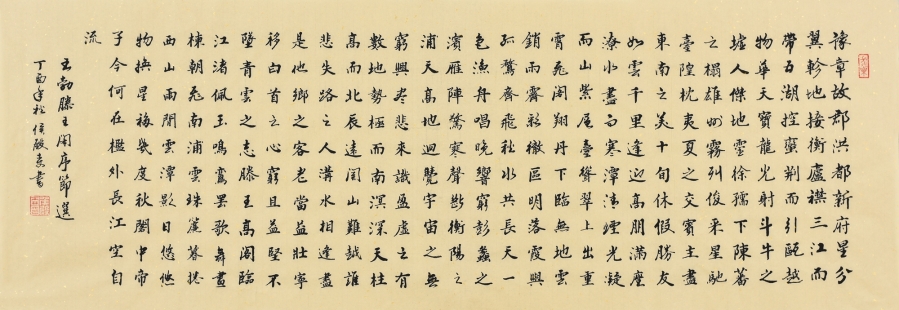 豫章故郡洪都新府星分
翼軫地接衡廬襟三江而
帶五湖控蠻荆而引甌越
物華天寶龍光射斗牛之
墟人傑地靈徐孺下陳蕃
之榻雄州霧列俊采星馳
臺隍枕夷夏之交賓主盡
東南之美十旬休假勝友
如雲千里逢迎高朋滿座
潦水盡而寒潭清煙光凝
而山紫層臺聳翠上出重
霄飛閣翔丹下臨無地雲
銷雨霽彩徹區明落霞與
孤鶩齊飛秋水共長天一
色漁舟唱晚響窮彭蠡之
濱雁陣驚寒聲斷衡陽之
浦天高地迥覺宇宙之無
窮興盡悲來識盈虛之有
數地勢極而南溟深天柱
高而北辰遠関山難越誰
悲失路之人溝水相逢盡
是他鄉之客老當益壯寧
移白首之心窮且益堅不
墜青雲之志滕王高閣臨
江渚佩玉鳴鸞罷歌舞畫
棟朝飛南浦雲珠簾暮捲
西山雨閒雲潭影日悠悠
物換星移幾度秋閣中帝
子今何在檻外長江空自
流
王勃滕王閣序節選
丁酉年 書